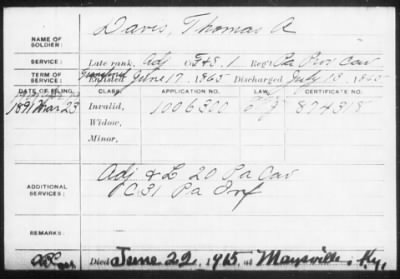 NAME OF SOLDIER: Davis, Thomas A
SERVICE: Late rank, Adj F&S. 1 Reg't Pa Prov Cav
TERM OF SERVICE: Transferred
Enlisted June 17, 1865 Discharged July 13, 1865
DATE OF FILING. CLASS. APPLICATION NO. LAW. CERTIFICATE NO.
1891 Mar 23 Invalid, 1006300 874318
Widow,
Minor,
ADDITIONAL SERVICES: Adj & L 20 Pa Cav
C 31 Pa Inf
REMARKS:
Died June 22, 1915, at Maysville, Ky.